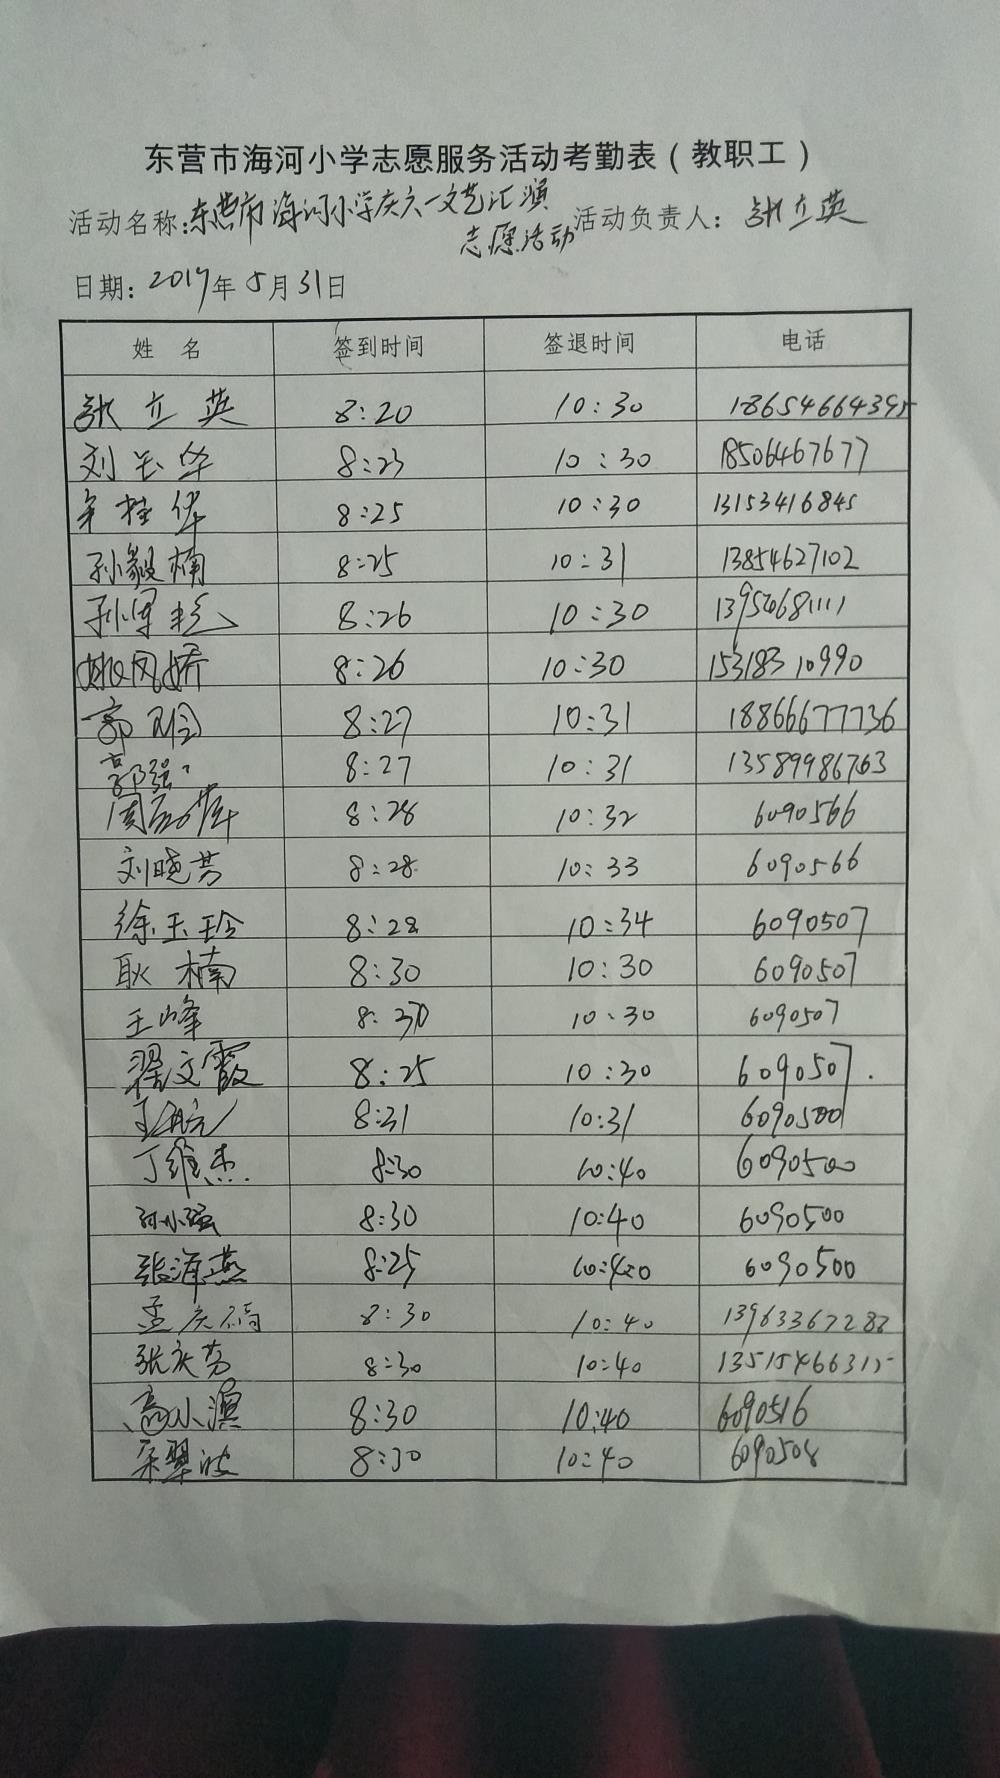 东营市海河小学志愿服务活动考勤表（教职工）
活动名称:东营市海河小学庆六一文艺汇演 活动负责人：张立英
志愿活动
日期：2017年5月31日
姓 名 签到时间 签退时间 电话
张立英 8:20 10:30 18654664395
刘玉华 8:23 10:30 18506467677
桂华 8:25 10:30 13153416845
孙毅楠 8:25 10:31 13854627102
8:26 10:30 13954681111
姚凤娇 8:26 10:30 15318310990
郭 8:27 10:31 18866677736
郭强 8:27 10:31 13589986763
周 8:28 10:32 6090566
刘晓芳 8:28 10:33 6090566
徐玉玲 8:28 10:34 6090507
耿楠 8:30 10:30 6090507
王峰 8:30 10:30 6090507
翟文霞 8:25 10:30 6090507
8:31 10:31 6090500
丁维杰 8:30 10:40 6090500
孙小强 8:30 10:40 6090500
张海燕 8:25 10:40 6090500
孟庆 8:30 10:40
张庆芳 8:30 10:40 13515466315
高小 8:30 10:40 6090516
8:30 10:40 6090508